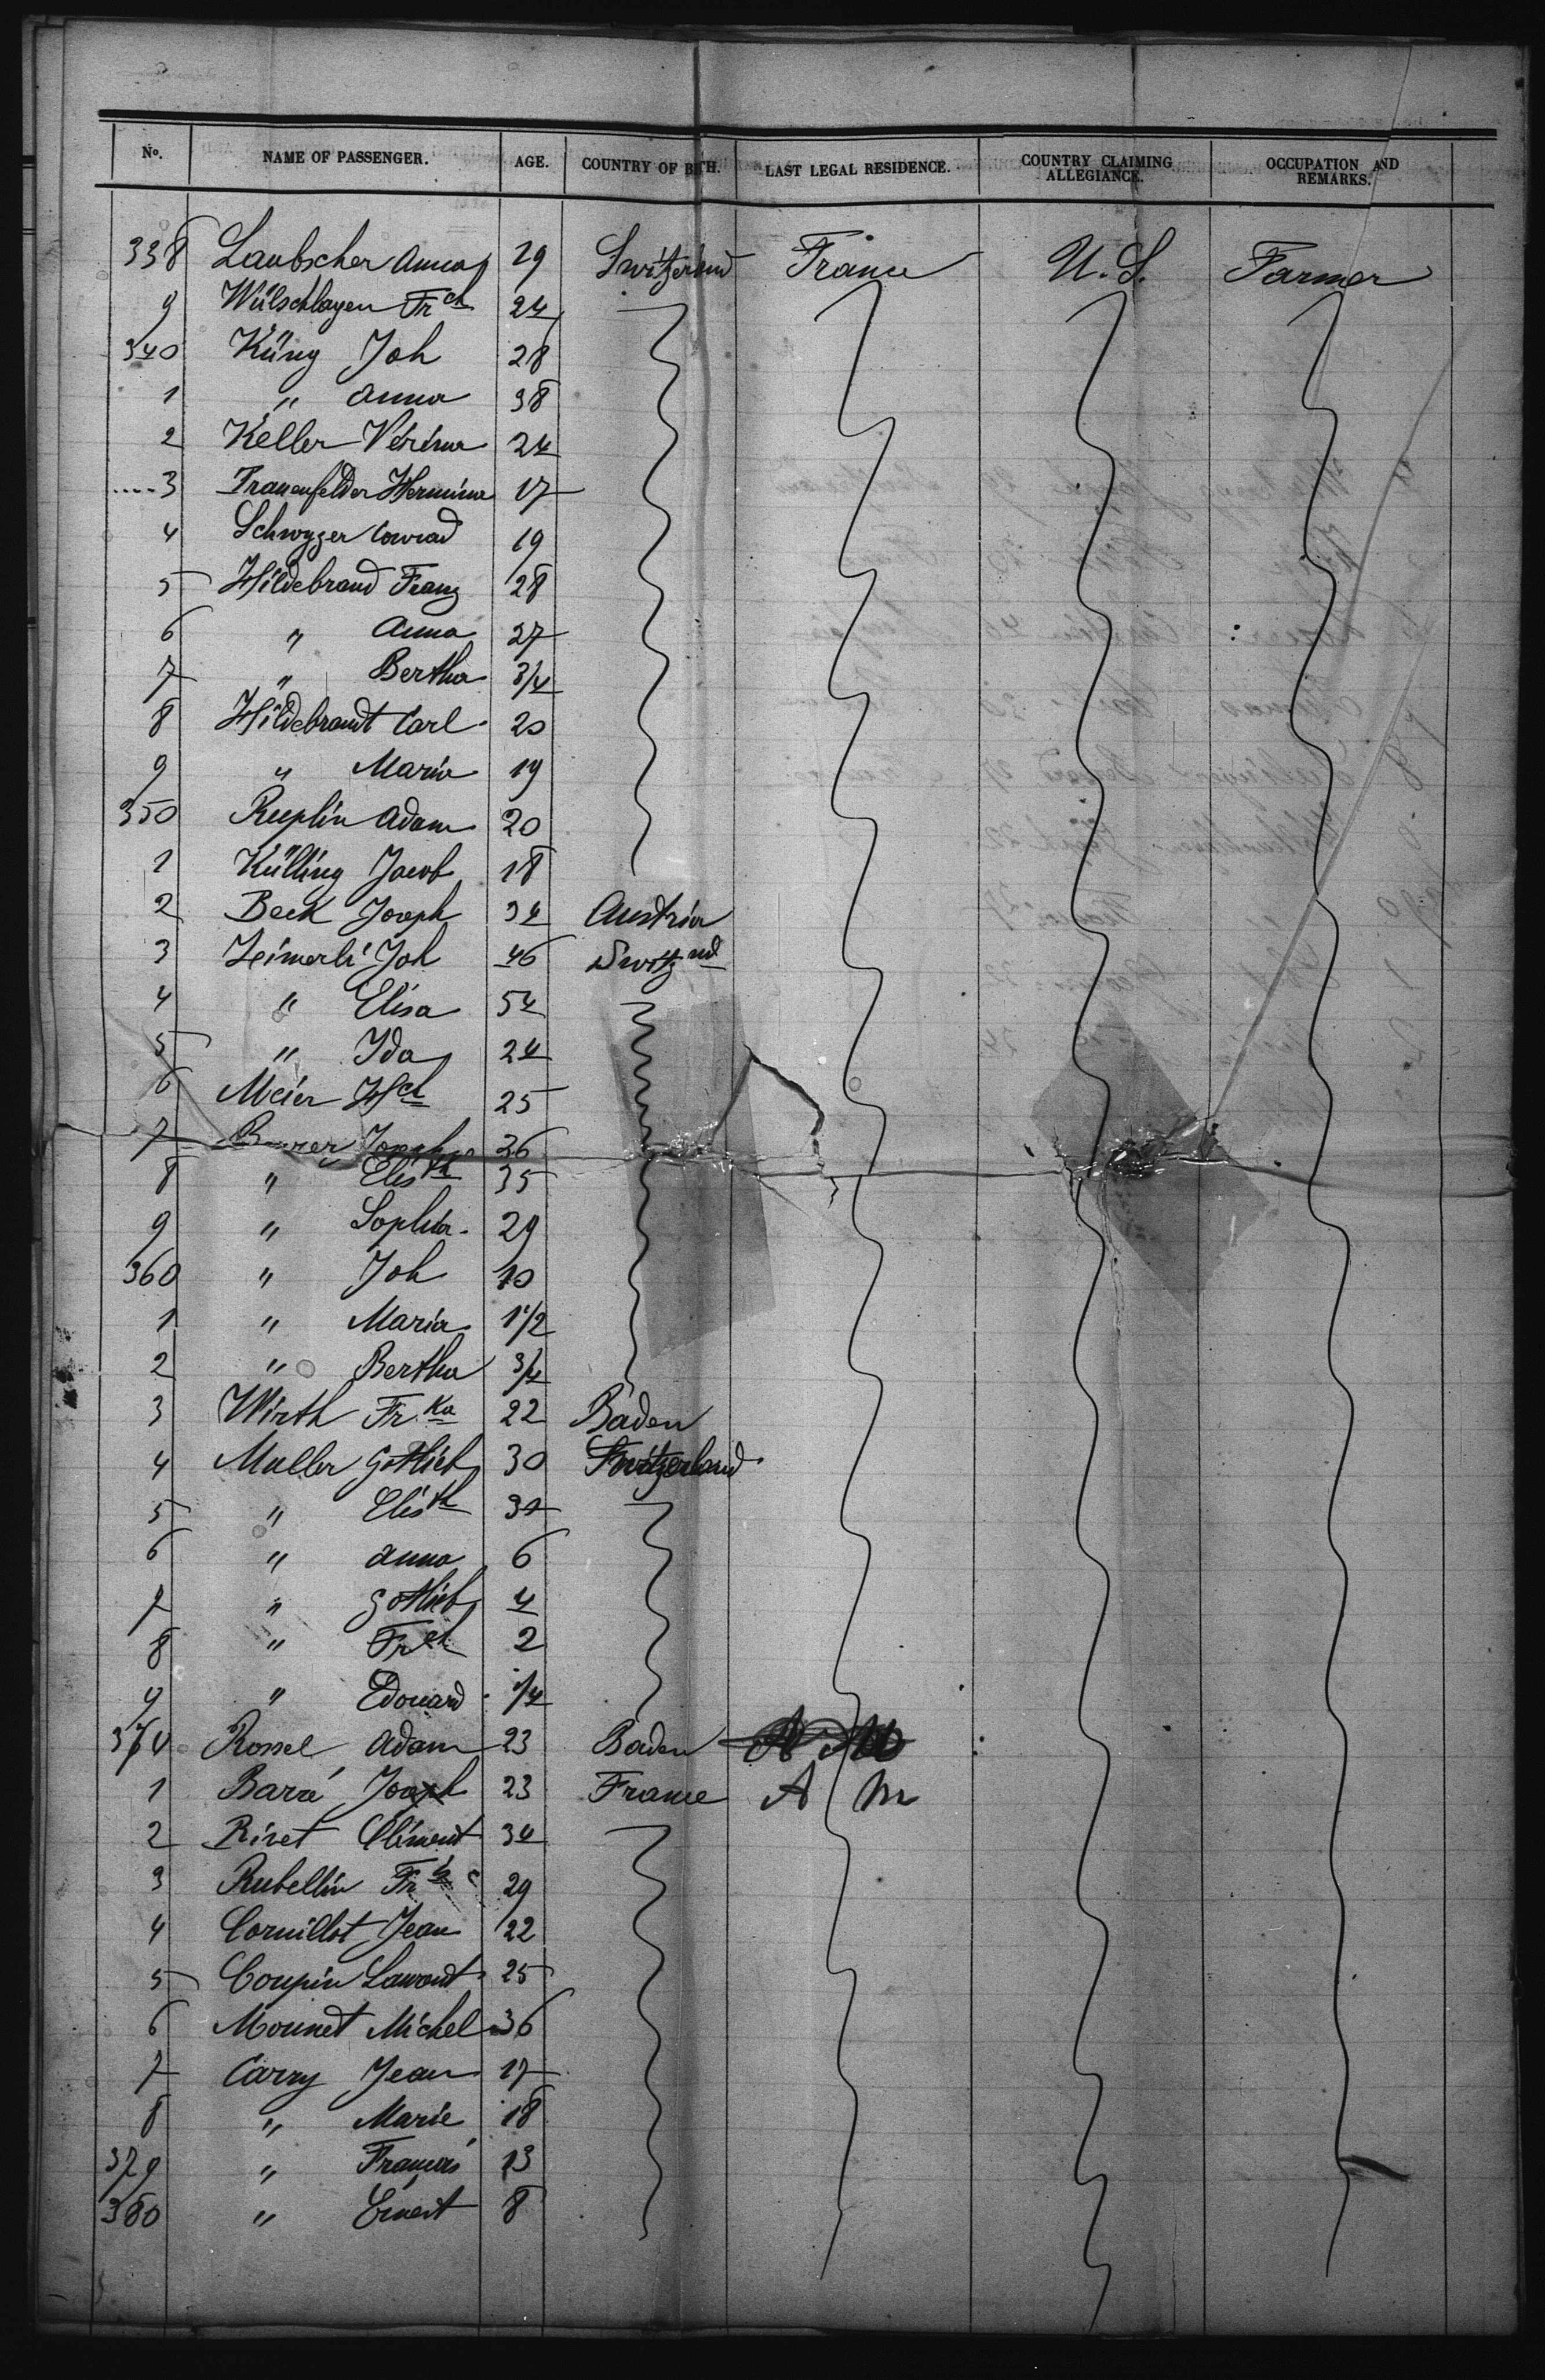 No. NAME OF PASSENGER. AGE. COUNTRY OF BITH. LAST LEGAL RESIDENCE. COUNTRY CLAIMING ALLEGIANCE. OCCUPATION AND REMARKS.
338 Laubscher Anna 29 Switzerland France U.S. Farmer
9 Wülschlagen Frch 24
340 Küng Joh 28
1 " Anna 38
2 Keller Véréna 24
3 Frauenfelder Hermine 17
4 Schwyzer Conrad 19
5 Hildebrand Franz 28
6 " Anna 27
7 " Bertha 3/4
8 Hildebrandt Carl 20
9 " Maria 19
350 Ruplin Adam 20
1 Külling Jacob 18
2 Beck Joseph 34 Austria
3 Zeimerli Joh 46 Switznd
4 " Elisa 54
5 " Ida 24
6 Meier Hch 25
7 Joseph 26
8 " Elisth 35
9 " Sophia 29
360 " Joh 10
1 " Maria 1 1/2
2 " Bertha 3/4
3 Wirth Fr.ka 22 Baden
4 Muller Gottlieb 30 Switzerland
5 " Elisth 31
6 " Anna 6
7 " Gottlieb 4
8 " Frch 2
9 " Edouard 1/4
370 Rossel Adam 23 Baden
1 Barré Joseph 23 France A M
2 Rivet Clément 34
3 Rubellin 29
4 Cornillot Jean 22
5 Coupin Laurent 25
6 Mounet Michel 36
7 Carry Jean 17
8 " Marie 18
379 " François 13
380 " Ernest 8